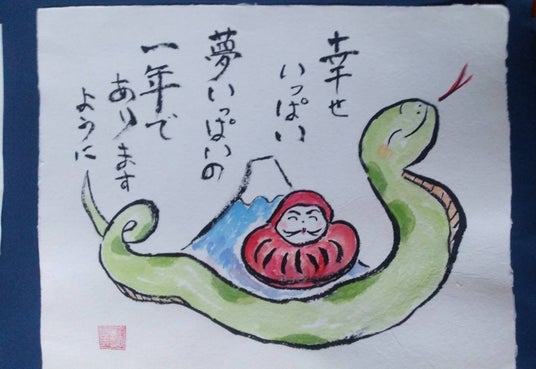 幸せ
いっぱい
夢いっぱいの
一年で
あります
ように